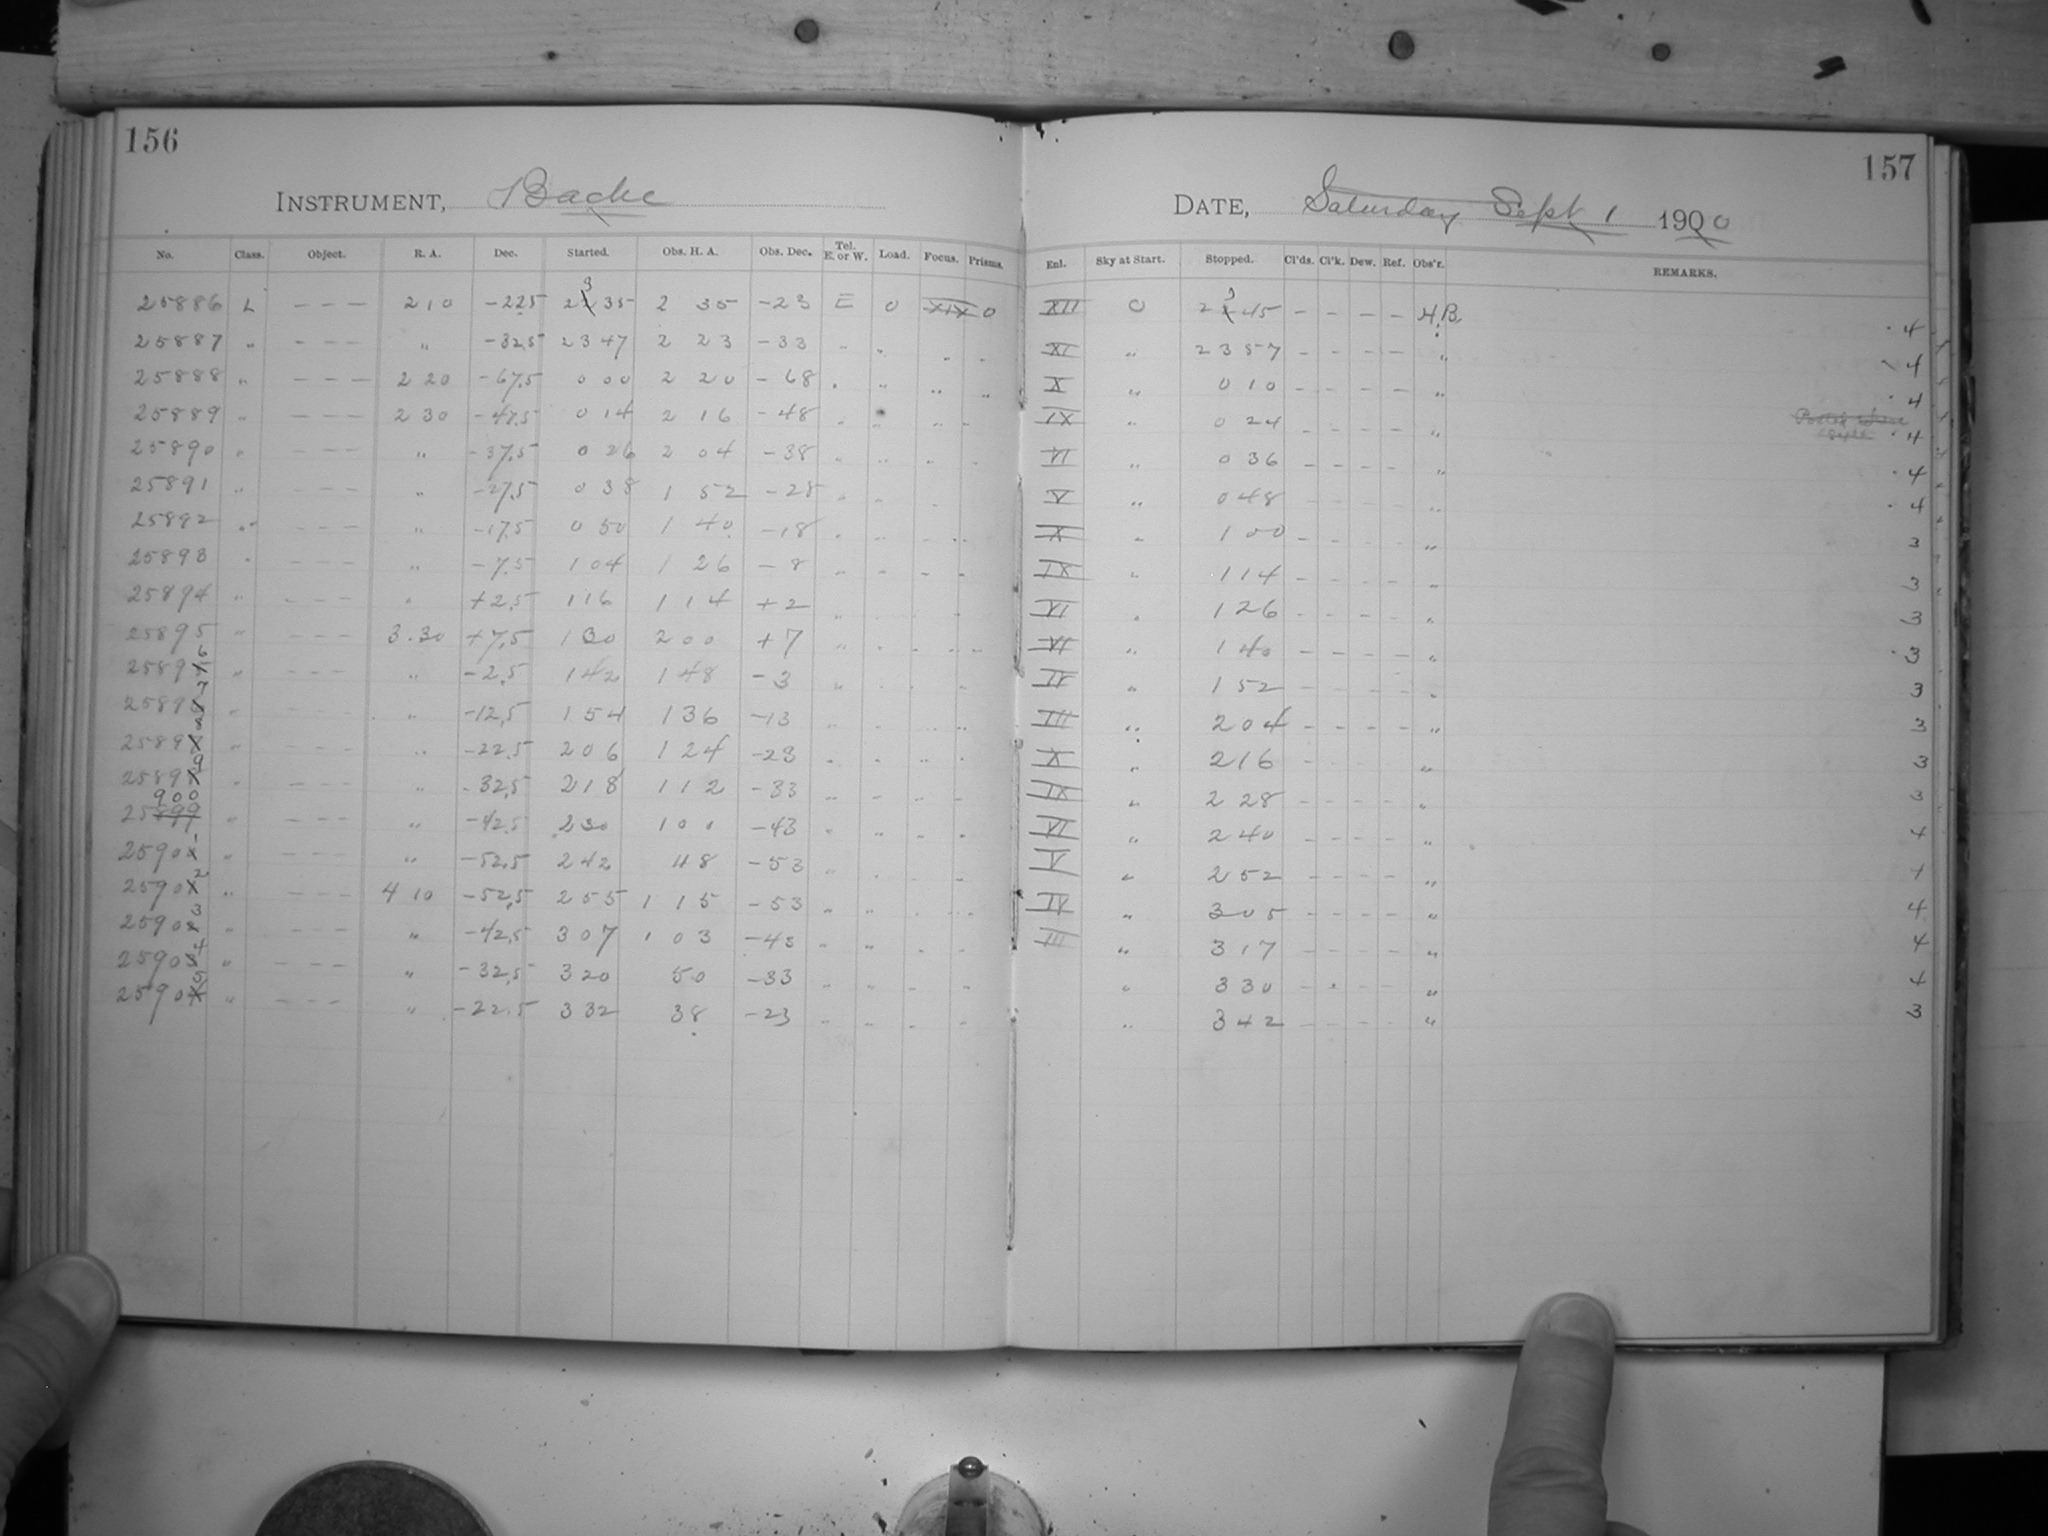 156
INSTRUMENT, Bache
No. Class. Object. R. A. Dec. Started. Obs. H. A. Obs. Dec. Tel. E. or W. Load. Focus. Prisms.
25886 L - - - 2 10 -22.5 23 35 2 35 -23 E 0 XIX 0
25887 " " -32.5 23 47 2 23 -33 " " " "
25888 " - - - 2 20 -67.5 0 00 2 20 -68 " " " "
25889 " - - - 2 30 -47.5 0 14 2 16 -48 " " " "
25890 " - - - " -37.5 0 26 2 04 -38 " " " "
25891 " - - - " -27.5 0 38 1 52 -28 " " "
25892 " - - - " -17.5 0 50 1 40 -18 " " " "
25893 " - - - " -7.5 1 04 1 26 -8 " " " "
25894 " - - - " +2.5 1 16 1 14 +2 " " " "
25895 " - - - 3.30 +7.5 1 30 2 00 +7 " " " "
25896 " - - - " -2.5 1 42 1 48 -3 " " " "
25897 " - - - " -12.5 1 54 1 36 -13 " " " "
25898 " - - - " -22.5 2 06 1 24 -23 " " " "
25899 " - - - " -32.5 2 18 1 12 -33 " " " "
25900 " - - - " -42.5 2 30 1 00 -43 " " " "
25901 " - - - " -52.5 2 42 48 -53 " " " "
25902 " - - - 4 10 -52.5 2 55 1 15 -53 " " " "
25903 " - - - " -42.5 3 07 1 03 -43 " " " "
25904 " - - - " -32.5 3 20 50 -33 " " " "
25905 " - - - " -22.5 3 32 38 -23 " " " "
157
DATE, Saturday Sept 1 1900
Enl. Sky at Start. Stopped. Cl'ds. Cl'k. Dew. Ref. Obs'r. REMARKS.
XII 0 23 45 - - - - H.B. 4
XI " 23 57 - - - - " 4
X " 0 10 - - - - " 4
IX " 0 24 - - - - " 4
VI " 0 36 - - - - " 4
V " 0 48 - - - - " 4
X " 1 00 - - - - " 3
IX " 1 14 - - - - " 3
VI " 1 26 - - - - " 3
VI " 1 40 - - - - " 3
IV " 1 52 - - - - " 3
III " 2 04 - - - - " 3
X " 2 16 - - - - " 3
IX " 2 28 - - - - " 3
VI " 2 40 - - - - " 4
V " 2 52 - - - - " 4
IV " 3 05 - - - - " 4
III " 3 17 - - - - " 4
" 3 30 - - - - " 4
" 3 42 - - - - " 3